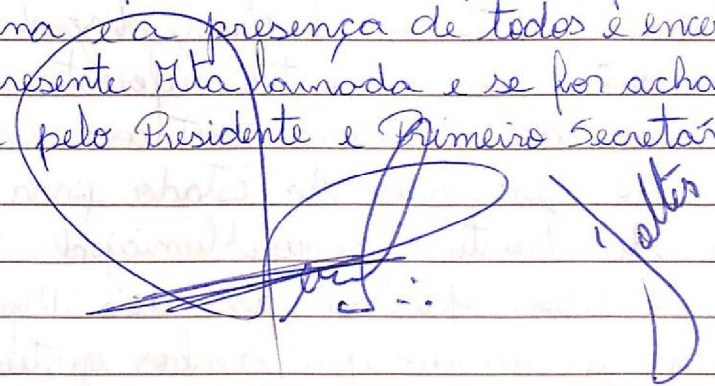 na e a presença de todos é ence
resente Ata lavrada e se for acha
pelo Presidente e Primeiro Secretár